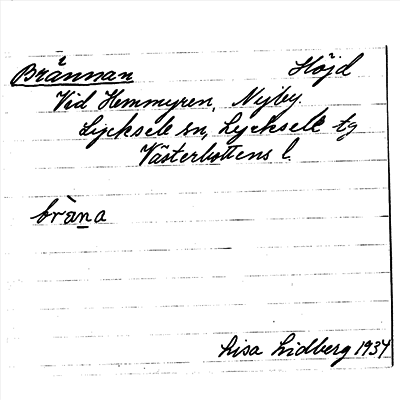 Brännan Höjd
Vid Hemmyren, Nyby.
Lycksele sn, Lycksele tg
Västerbottens l.
bràna
Lisa Lidberg 1934